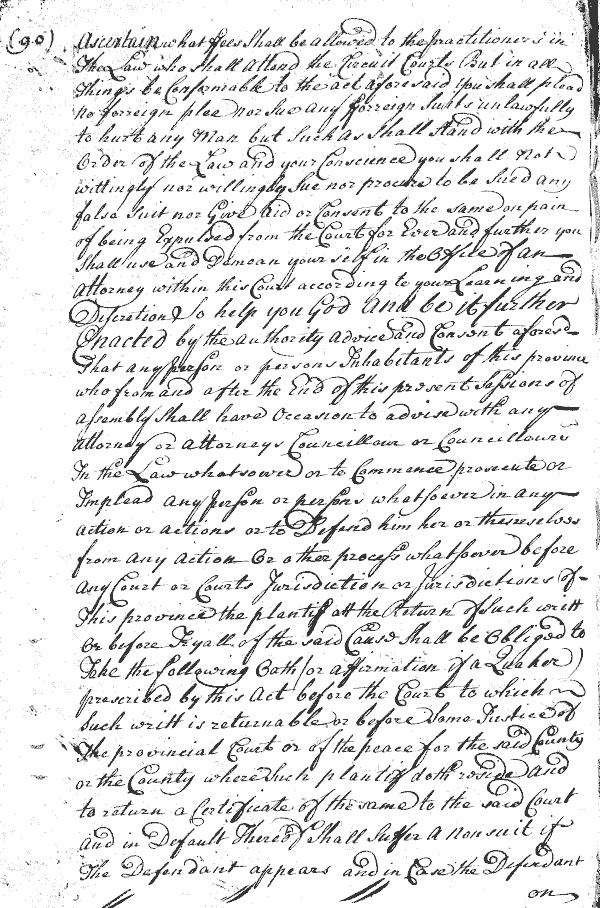 (90) Ascertain what ffees shall be allowed to the practitioners in
The Law who shall attend the Circuit Courts But in all
Things be Conformable to the act aforesaid you shall plead
no forreign plee nor Sue any forreign Suits unlawfully
to hurt any Man but such as Shall stand with the
Order of the Law and your Conscience you shall Not
wittingly nor willingly Sue nor procure to be Sued any
false Suit nor Give Aid or Consent to the same on pain
of being Expulsed from the Court for Ever and further you
Shall use and Demean your self in the Office of an
Attorney within this Court according to your Learning and
Discretion So help you God And be it further
Enacted by the authority advice and Consent aforesd
That any person or persons Inhabitants of this province
who from and after the End of this present Sessions of
assembly Shall have Occasion to advise with any
attorney or attorneys Councillour or Councillours
In the Law whatsoever or to Commence prosecute or
Implead any person or persons whatsoever in any
action or actions or to Defend him her or themselves
from any action Or other process whatsoever before
any Court or Courts Jurisdiction or Jurisdictions of
This province the plantif att the Return of Such writt
Or before Tryall of the said Cause Shall be Obliged to
Take the following Oath (or affirmation if a Quaker)
prescribed by this Act before the Court to which
Such writt is returnable or before Some Justice of
The provincial Court or of the peace for the said County
or the County where Such plantif doth reside And
to return a Certificate of the same to the said Court
And in Default Thereof Shall Suffer a nonsuit if
The Defendant appears and in Case the Defendant
on